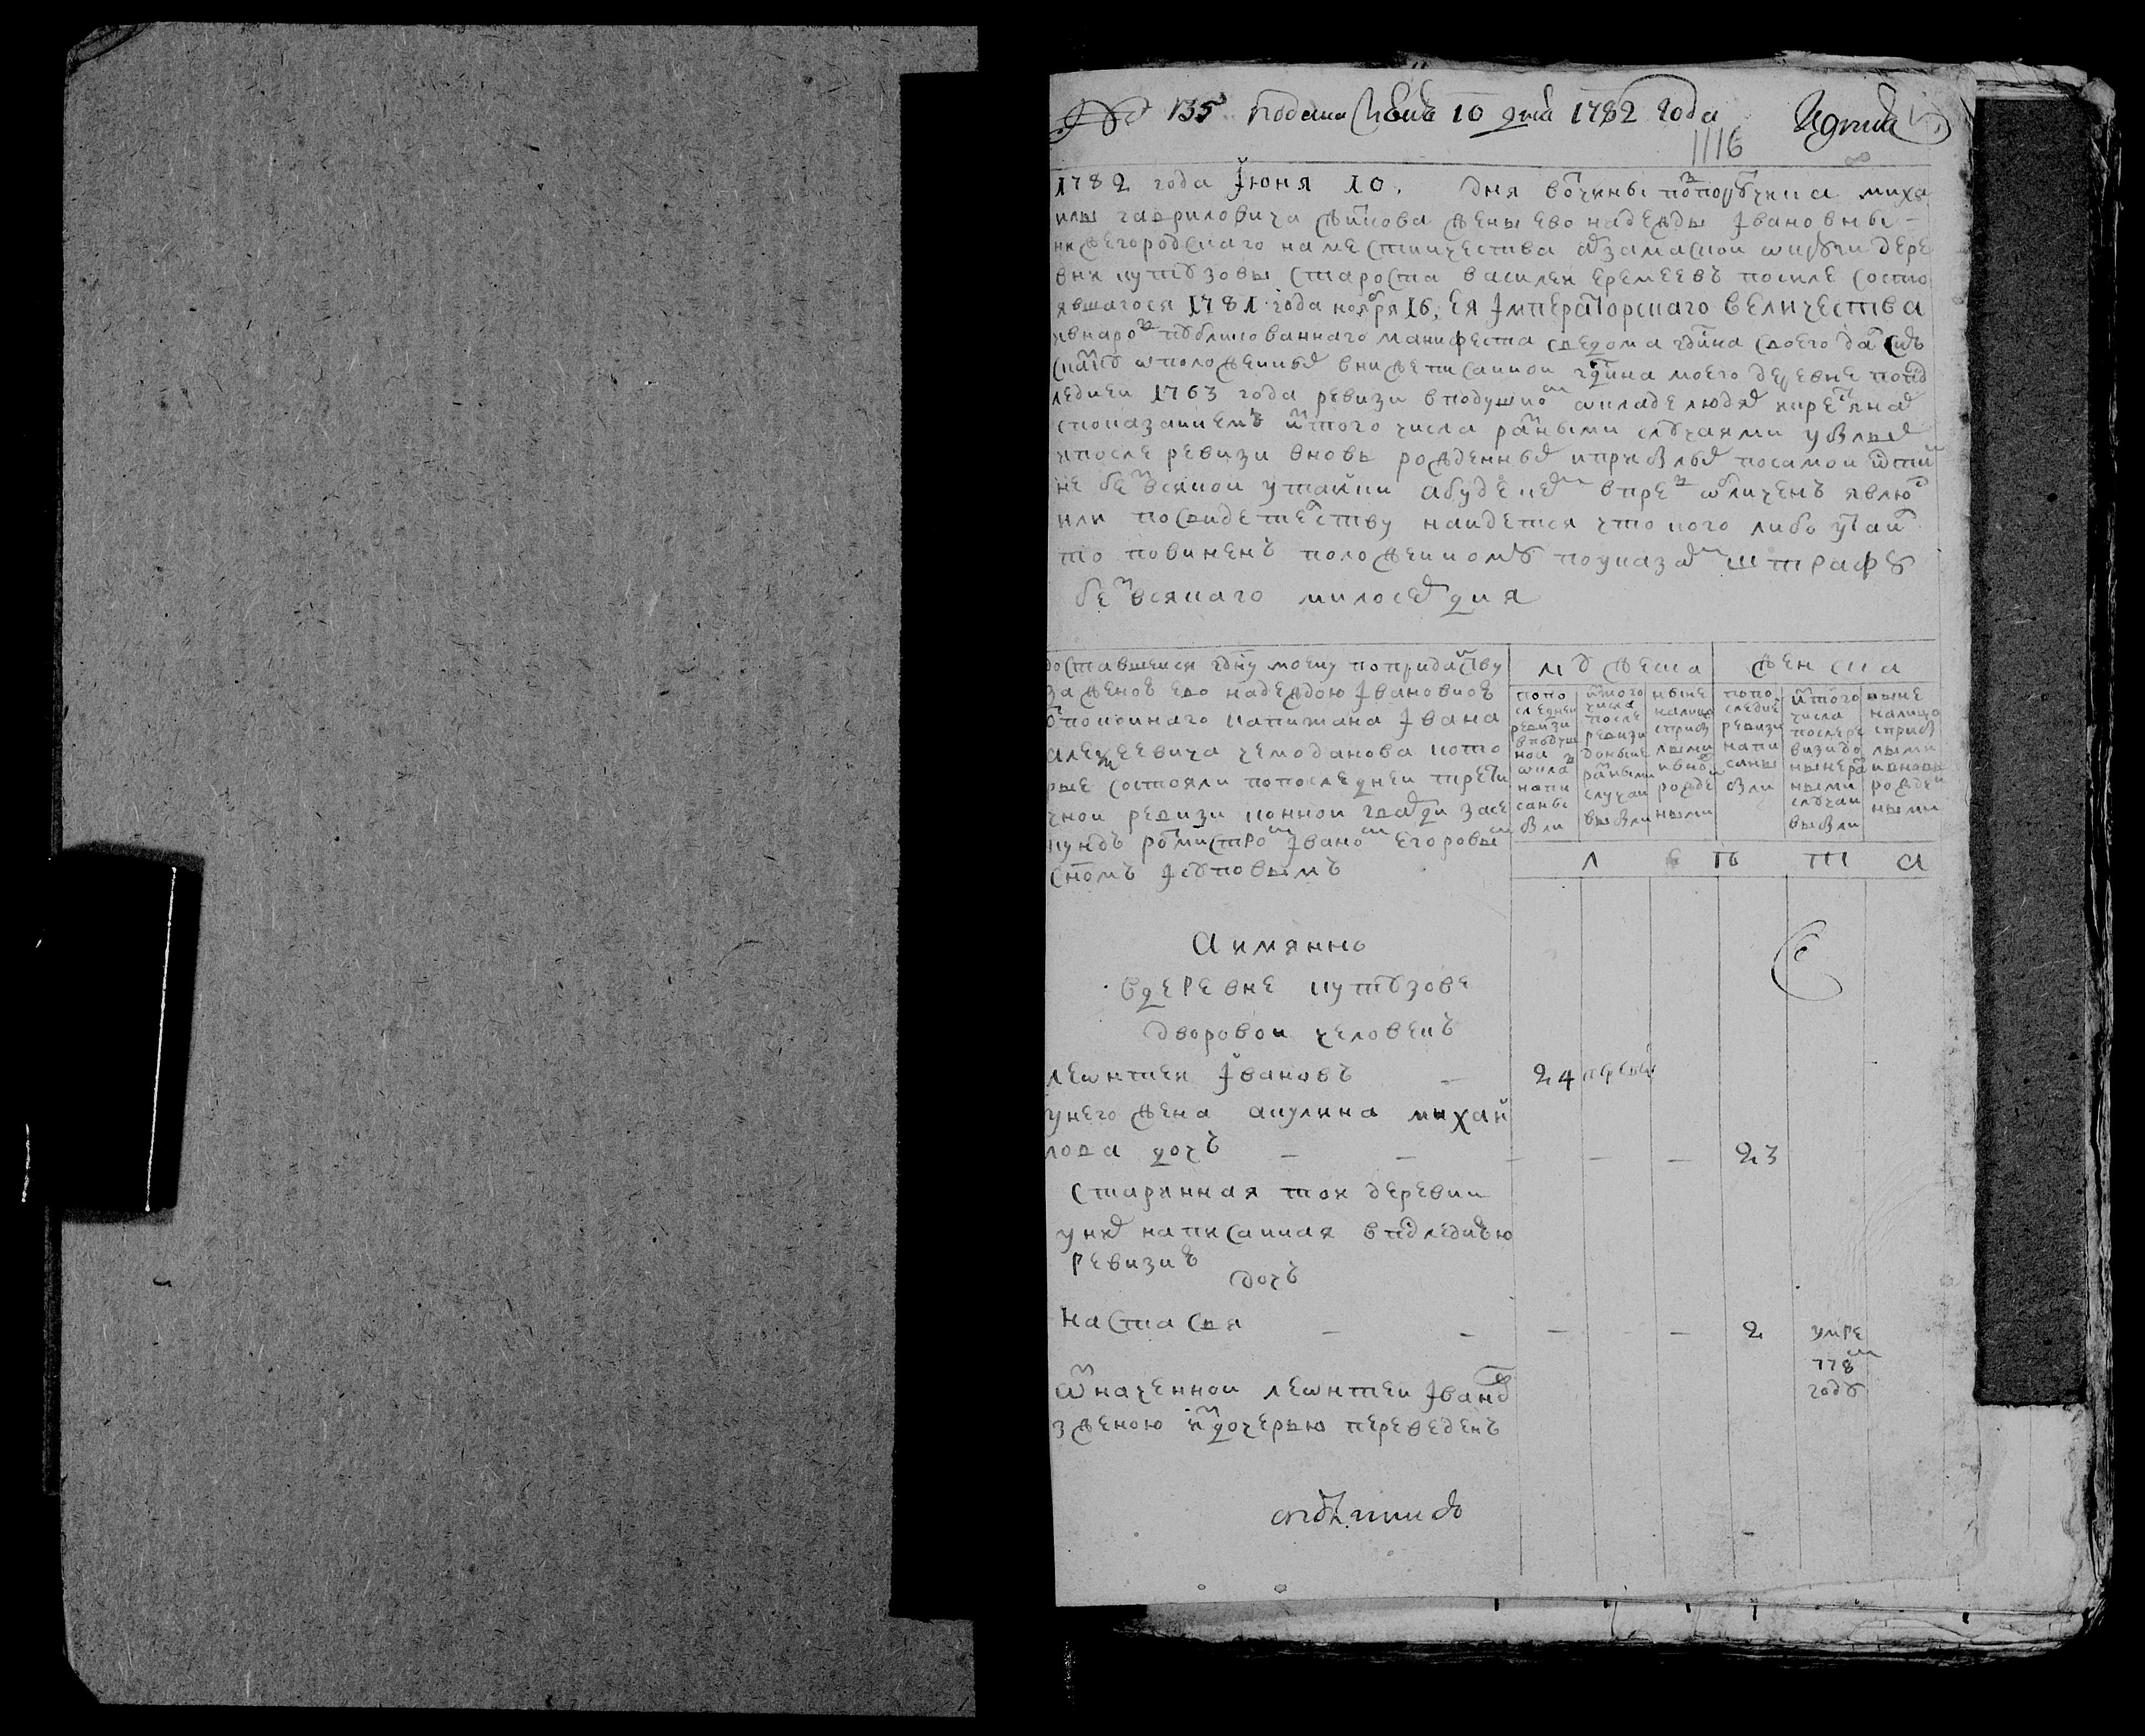 135 подана июнь 10 дня 1782 года
1116
1782 года июня 10. дня вотчины подпорутчика миха
илы гавриловича жены ево надежды ивановны
нижегородскаго наместничества арзамаской округи дере
вни кутузовы староста василеи еремеевъ посиле состо
явшагося 1781 года ноября 16, ея императорскаго величества
ивнародъ публикованнаго манифеста сведома гдина своего далъ сию
скаску ѡположенныхъ внижеписаннои гдина моего деревне попослед
леднеи 1763 года ревизи вподушномъ ѡкладе людяхъ икрестьянахъ
споказаниемъ изтого числа разными случаями убылыхъ
ипосле ревизи вновь рожденныхъ иприбылыхъ посамои исти
не безвсякои утаики абуде кемъ впредь ѡбличенъ явлюсь
или посвидетелству наидется что кого либо утаилъ
то повиненъ положенному поуказамъ штрафу
безвсякаго милосердия
доставшеися гдну моему попридаству
заженою ево надеждою ивановною
отпокоинаго капитана ивана
алексеевича чемоданова кото
рые состояли попоследнеи треть
чнои ревизи коннои гвардии засе
кундъ ротмистромъ иваномъ егоровы
сномъ юсуповымъ
мужеска
женска
попо
следнеи
ревизи
вподуш
ной
ѡкладъ
напи
саны
были
изтого
числа
после
ревизи
доныне
разными
случаи
выбыли
ныне
налицо
сприбы
лыми
ивновь
рожде
ными
попо
следне
ревизи
напи
саны
были
изтого
числа
послере
визи до
ныне раз
ными
случаи
выбыли
ныне
налицо
сприбы
лыми
ивновь
рожден
ными
л ѣ т а
а имянно
вдеревне кутузове
дворовои человекъ
леѡнтеи ивановъ – 24
унего жена акулина михаи
лова дочь – – – – – 23
старинная тои деревни
унихъ написанная впоследнюю
ревизию
дочь
настасья – – – – – 2 умре
778м
году
ѡзначеннои леѡнтеи ивановъ
зженою издочерью переведенъ